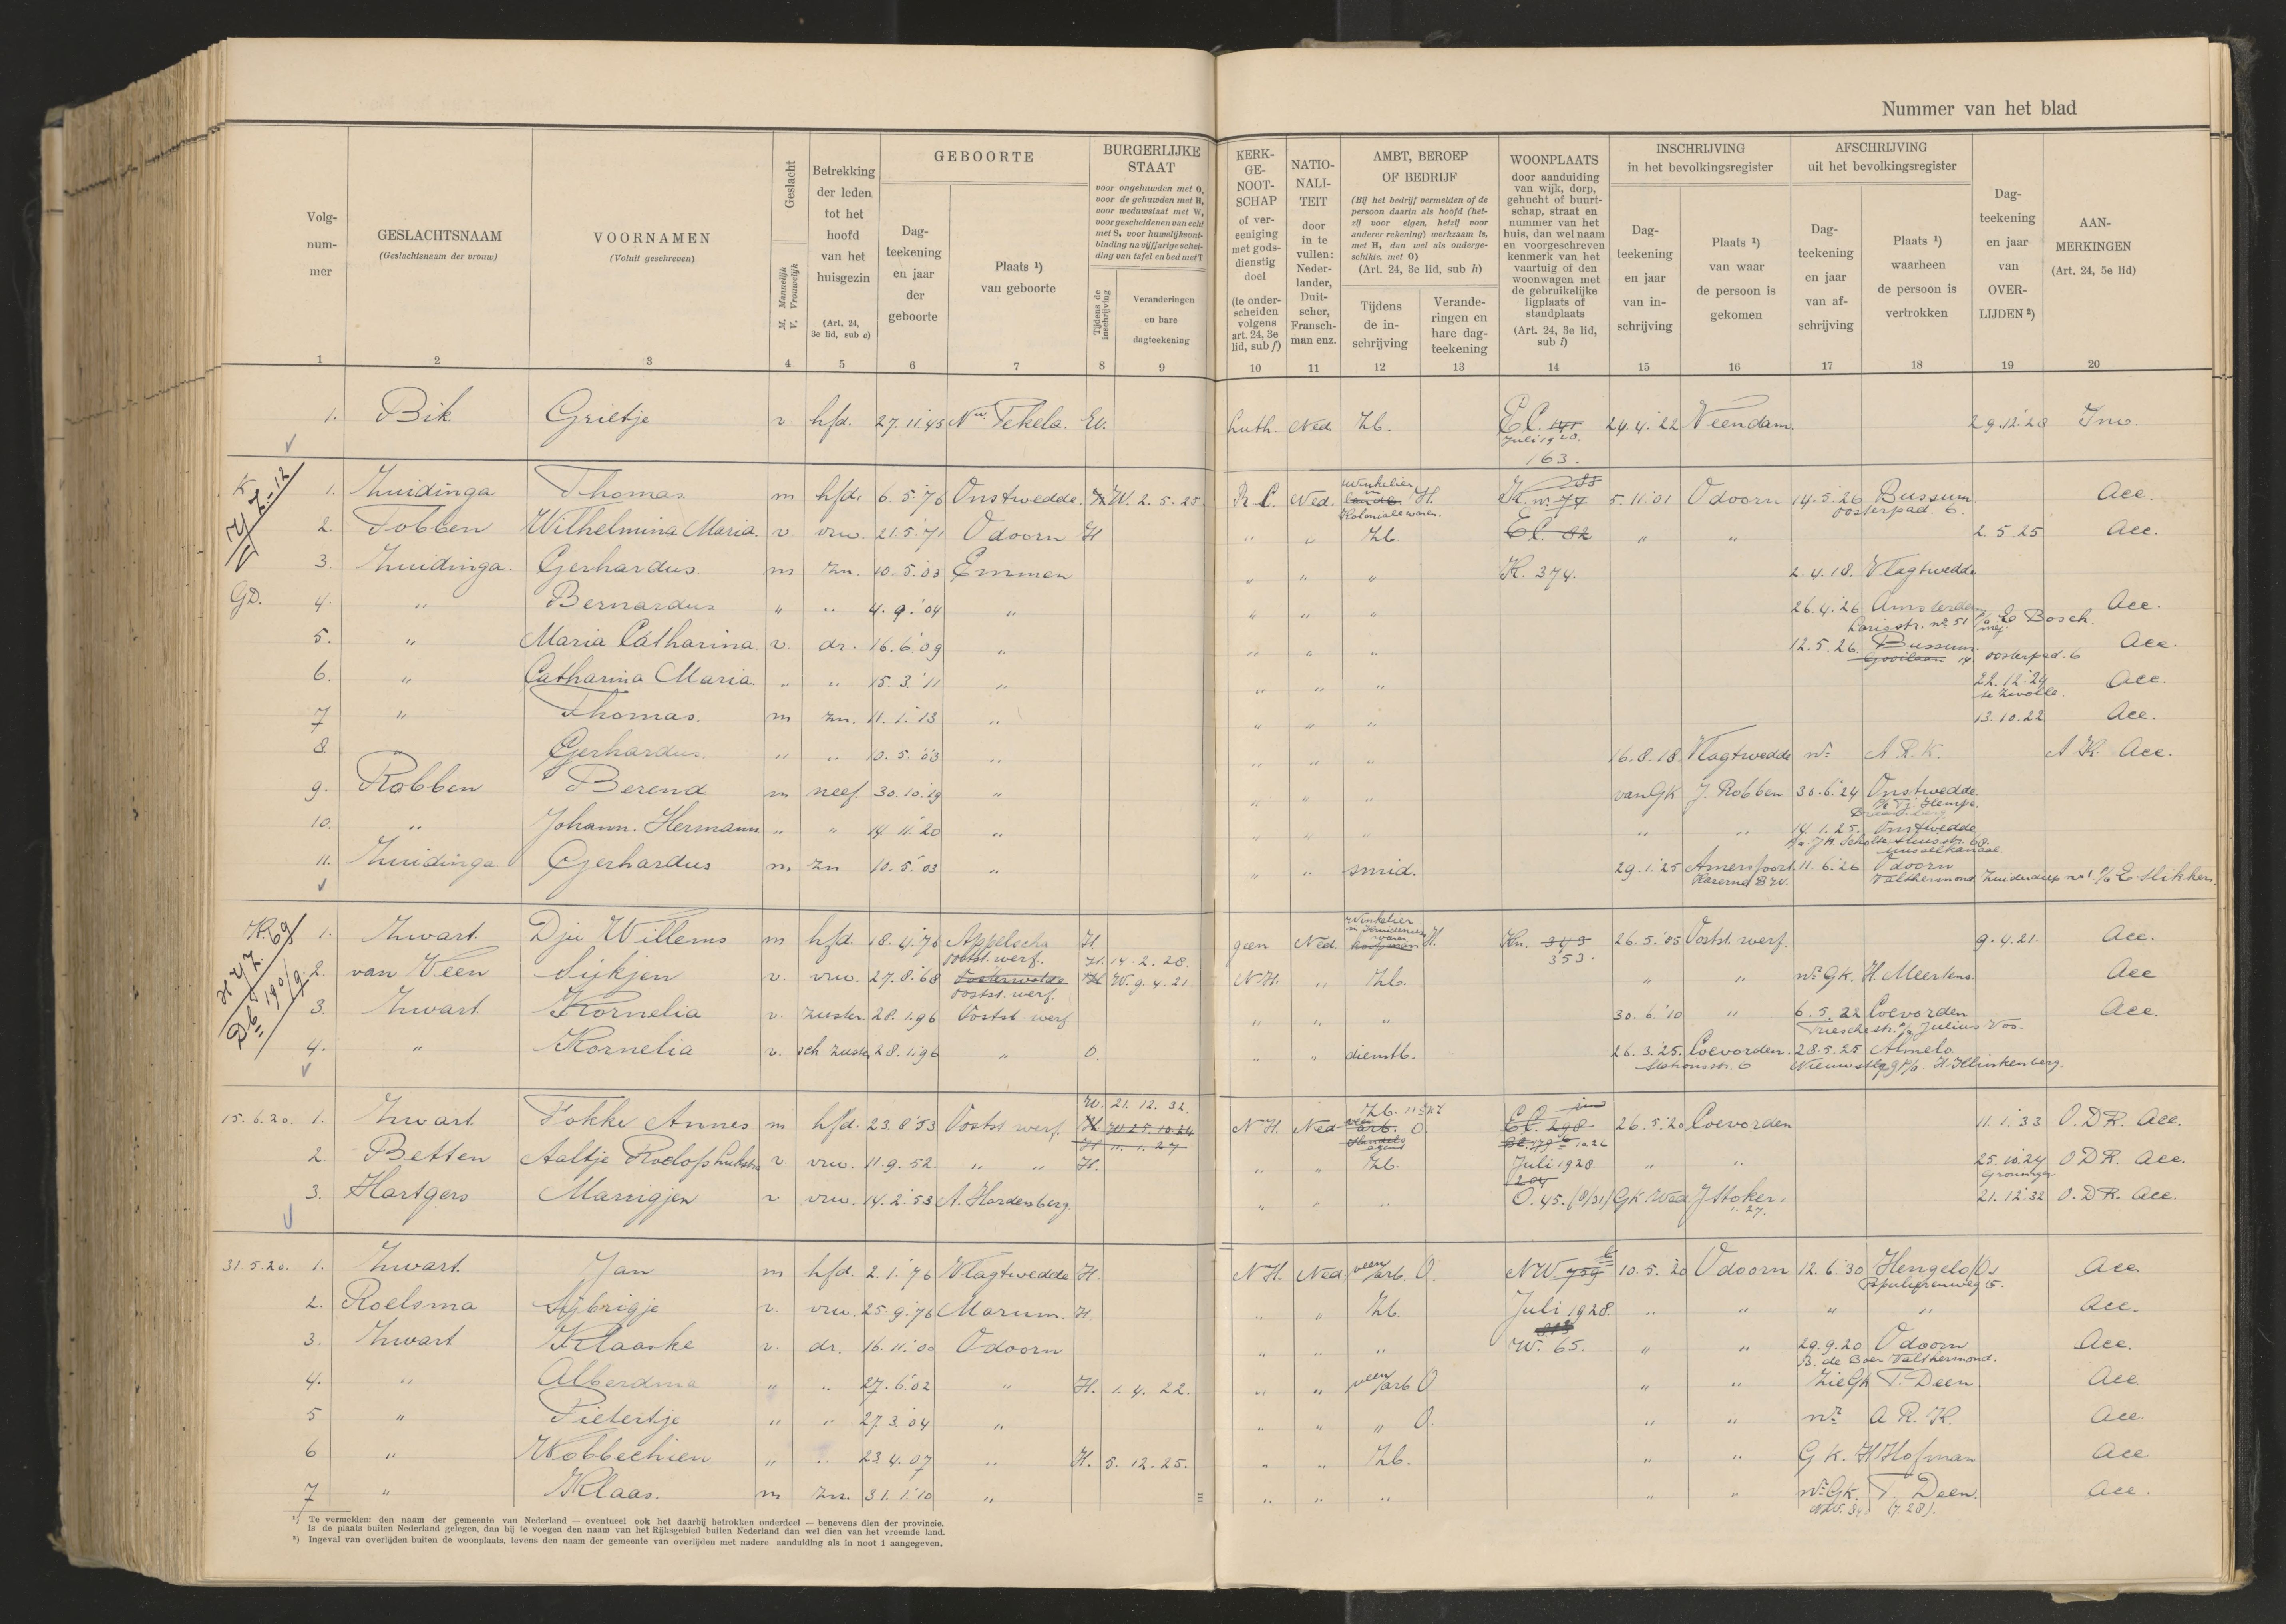 Nummer van het blad
Volg-
num-
mer
GESLACHTSNAAM
(Geslachtsnaam der vrouw)
VOORNAMEN
(Voluit geschreven)
Geslacht
M. Mannelijk
V. Vrouwelijk
Betrekking
der leden
tot het
hoofd
van het
huisgezin
(Art. 24,
3e lid, sub c)
GEBOORTE
Dag-
teekening
en jaar
der
geboorte
Plaats ¹)
van geboorte
BURGERLIJKE
STAAT
voor ongehuwden met O,
voor de gehuwden met H,
voor weduwstaat met W,
voor gescheidenen van echt
met S, voor huwelijksont-
binding na vijfjarige schei-
ding van tafel en bed met T
Tijdens de
inschrijving
Veranderingen
en hare
dagteekening
KERK-
GE-
NOOT-
SCHAP
of ver-
eeniging
met gods-
dienstig
doel
(te onder-
scheiden
volgens
art. 24, 3e
lid, sub f)
NATIO-
NALI-
TEIT
door
in te
vullen:
Neder-
lander,
Duit-
scher,
Fransch-
man enz.
AMBT, BEROEP
OF BEDRIJF
(Bij het bedrijf vermelden of de
persoon daarin als hoofd (het-
zij voor eigen, hetzij voor
anderer rekening) werkzaam is,
met H, dan wel als onderge-
schikte, met O)
(Art. 24, 3e lid, sub h)
Tijdens
de in-
schrijving
Verande-
ringen en
hare dag-
teekening
WOONPLAATS
door aanduiding
van wijk, dorp,
gehucht of buurt-
schap, straat en
nummer van het
huis, dan wel naam
en voorgeschreven
kenmerk van het
vaartuig of den
woonwagen met
de gebruikelijke
ligplaats of
standplaats
(Art. 24, 3e lid,
sub i)
INSCHRIJVING
in het bevolkingsregister
Dag-
teekening
en jaar
van in-
schrijving
Plaats ¹)
van waar
de persoon is
gekomen
AFSCHRIJVING
uit het bevolkingsregister
Dag-
teekening
en jaar
van af-
schrijving
Plaats ¹)
waarheen
de persoon is
vertrokken
Dag-
teekening
en jaar
van
OVER-
LIJDEN ²)
AAN-
MERKINGEN
(Art. 24, 5e lid)
1 2 3 4 5 6 7 8 9 10 11 12 13 14 15 16 17 18 19 20
1. Bik Grietje v hfd. 27.11.'45 Nw Pekela. W. Luth. Ned. Zb. E.C. 24.4.'22 Veendam. 29.12.'28
Juli 1928.
163.
1. Zuidinga Thomas m hfd. 6.5.'76 Onstwedde. W. 2.5.25. R.C. Ned. Winkelier in H. K. nr. 74 5.11.'01 Odoorn 14.5.'26 Bussum Acc.
Koloniale waren. oosterpad. 6.
2. Tobben Wilhelmina Maria. v. vrw. 21.5.'71 Odoorn H " " Zb E.C. 82 " " 2.5.25 Acc.
3. Zuidinga. Gerhardus m zn. 10.5.'03 Emmen " " " K. 374. 2.4.18. Vlagtwedde
GD. 4. " Bernardus " " 4.9.'04 " " " " 26.4.'26 Amsterdam Acc.
Bosch.
5. " Maria Catharina. v. dr. 16.6.'09 " " " " 12.5.26 Bussum. Acc.
14. oosterpad. 6
6. " Catharina Maria. " " 15.3.'11 " " " " 22.12.'24 Acc.
te Zwolle.
7 " Thomas. m zn. 11.1.'13 " " " " 13.10.22 Acc.
8 " Gerhardus. " " 10.5.'03 " " " " 16.8.18. Vlagtwedde nr. A.R.K. A.K. Acc.
9. Robben Berend m neef. 30.10.'19 " " " " van GK J. Robben 30.6.'24 Onstwedde.
10. " Johann. Hermann " " 14.11.'20 " " " " " " 14.1.25. Onstwedde
Musselkanaal
11. Zuidinga Gerhardus m zn 10.5.'03 " " " smid. 29.1.'25 Amersfoort. 11.6.'26 Odoorn
Kazerne Valthermond. Zuiderdiep nr 1 p/a E Slikkers.
K. 69 1. Zwart. Djie Willems m hfd. 18.4.'76 Appelscha H geen Ned. Winkelier H. 26.5.'05 Ootst. werf. 9.4.21. Acc.
Ootst. werf. 353.
2. van Veen Sijkjen v. vrw. 27.8.'68 Oosterwolde W. 9.4.21 N.H. " Zb. " " nr. GK. H Meertens. Acc
Ootst. werf.
3. Zwart. Kornelia v. zuster. 28.1.96 Ootst. werf " " " 30.6.'10 " 6.5.22 Coevorden Acc.
Julius Vos.
4. " Kornelia v. sch zuster 28.1.96 " O. " " dienstb. 26.3.'25. Coevorden. 28.5.25 Almelo
Stationsstr. 6 H Klinkenberg.
15.6.20. 1. Zwart Fokke Annes m hfd. 23.8.'53 Ootst. werf. H W. 25.10.24 N.H. Ned. O. E.C. 298 26.5.'20 Coevorden 11.1.33 O.D.R. Acc.
W. 21.12.32.
H 11.1.27
2. Betten Aaltje Roelofs v. vrw. 11.9.52. " " H. " " Zb. Juli 1928. " " 25.10.'24 O.D.R. Acc.
204 Groningen
3. Hartgers Marrigjen v vrw. 14.2.'53 A. Hardenberg. " " " O. 45. (8/31) GK. Wed J Stoker. 21.12.'32 O.D.R. Acc.
31.5.20. 1. Zwart. Jan m hfd. 2.1.'76 Vlagtwedde H. N.H. Ned. veen/arb. O. N.W. 759 10.5.'20 Odoorn 12.6.'30 Hengelo (O). Acc.
2. Roelsma Sijbrigje v. vrw. 25.9.'76 Marum. H. " " Zb. Juli 1928. " " " " Acc.
3. Zwart Klaaske v. dr. 16.11.'00 Odoorn " " " W. 65. " " 29.9.20 Odoorn Acc.
B. de Boer Valthermond.
4. " Alberdina " " 27.6.'02 " H. 1.4.22. " " veen/arb O " " Zie GK T. Deen. Acc.
5 " Pietertje " " 27.3.'04 " " " " O. " " nr. A.R.K. Acc.
6 " Wobbechien " " 23.4.07 " H. 5.12.25. " " Zb. " " GK. H Hofman Acc
7 " Klaas. m zn. 31.1.'10 " " " " " " nr. GK. T. Deen. Acc.
(7.28).
¹) Te vermelden: den naam der gemeente van Nederland — eventueel ook het daarbij betrokken onderdeel — benevens dien der provincie.
Is de plaats buiten Nederland gelegen, dan bij te voegen den naam van het Rijksgebied buiten Nederland dan wel dien van het vreemde land.
²) Ingeval van overlijden buiten de woonplaats, tevens den naam der gemeente van overlijden met nadere aanduiding als in noot 1 aangegeven.